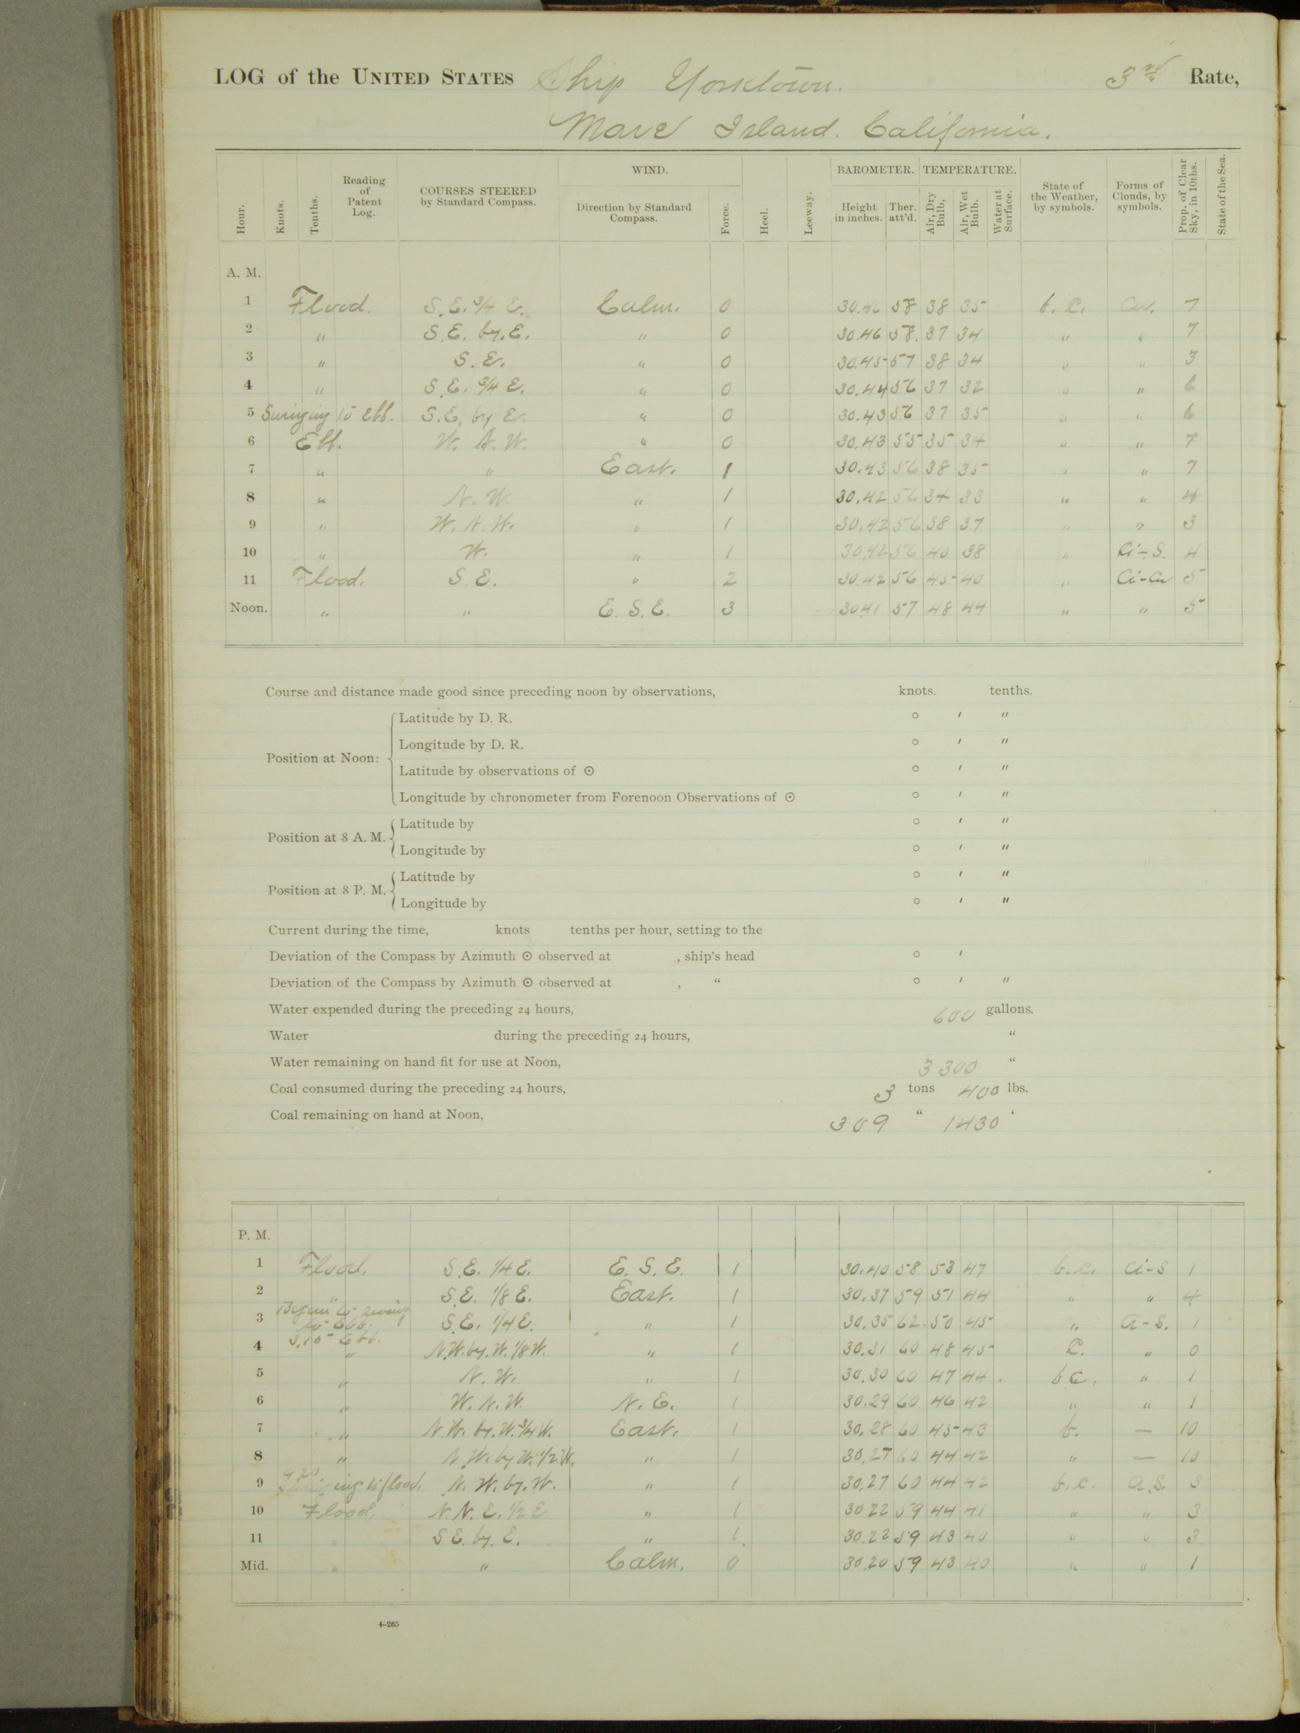 LOG of the UNITED STATES Ship Yorktown. 3rd Rate,
Mare Island. California.
Hour. Knots. Tenths. Reading of Patent Log. COURSES STEERED by Standard Compass. WIND. Direction by Standard Compass. Force. Heel. Leeway. BAROMETER. Height in inches. Ther. att'd. TEMPERATURE. Air, Dry Bulb, Air, Wet Bulb. Water at Surface. State of the Weather, by symbols. Forms of Clouds, by symbols. Prop. of Clear Sky, in 10ths. State of the Sea.
A. M.
1 Flood. S.E. 3/4 E. Calm. 0 30.46 58 38 35 b.c. Cu. 7
2 " S.E. by. E. " 0 30.46 58. 37 34 " " 7
3 " S.E. " 0 30.45 57 38 34 " " 3
4 " S.E. 3/4 E. " 0 30.44 56 37 32 " " 6
5 Swinging to Ebb. S.E. by E. " 0 30.43 56 37 35 " " 6
6 Ebb. W.N.W. " 0 30.43 55 35 34 " " 7
7 " " East. 1 30.43 56 38 35 " " 7
8 " N.W. " 1 30.42 56 34 33 " " 4
9 " W.N.W. " 1 30.42 56 38 37 " " 3
10 " W. " 1 30.42 56 40 38 " Ci-S. 4
11 Flood. S.E. " 2 30.42 56 45 40 " Ci-Cu 5
Noon. " " E.S.E. 3 30.41 57 48 44 " " 5
Course and distance made good since preceding noon by observations, knots. tenths.
Position at Noon: Latitude by D. R. ° ′ ″
Longitude by D. R. ° ′ ″
Latitude by observations of ☉ ° ′ ″
Longitude by chronometer from Forenoon Observations of ☉ ° ′ ″
Position at 8 A. M. Latitude by ° ′ ″
Longitude by ° ′ ″
Position at 8 P. M. Latitude by ° ′ ″
Longitude by ° ′ ″
Current during the time, knots tenths per hour, setting to the
Deviation of the Compass by Azimuth ☉ observed at , ship's head ° ′
Deviation of the Compass by Azimuth ☉ observed at , " ° ′ ″
Water expended during the preceding 24 hours, 600 gallons.
Water during the preceding 24 hours, "
Water remaining on hand fit for use at Noon, 3300 "
Coal consumed during the preceding 24 hours, 3 tons 400 lbs.
Coal remaining on hand at Noon, 309 " 1430 "
P. M.
1 Flood. S.E. 1/4 E. E.S.E. 1 30.40 58 53 47 b.c. Ci-S 1
2 " S.E. 1/8 E. East. 1 30.37 59 51 44 " " 4
3 Began to swing to Ebb. S.E. 1/4 E. " 1 30.35 62 50 45 " a-S. 1
4 3.15 Ebb. " N.W. by. W. 1/8 W. " 1 30.31 60 48 45 C. " 0
5 " N.W. " 1 30.30 60 47 44 b.c. " 1
6 " W.N.W. N.E. 1 30.29 60 46 42 " " 1
7 " N.W. by. W. 3/4 W. East. 1 30.28 60 45 43 b. — 10
8 " N.W. by W. 1/2 W. " 1 30.27 60 44 42 " — 10
9 ging to flood. N.W. by. W. " 1 30.27 60 44 42 b.c. a.S. 3
10 Flood. N.N.E. 1/2 E " 1 30.22 59 44 41 " " 3
11 " S.E. by. E. " 1 30.22 59 43 40 " " 3
Mid. " " Calm. 0 30.20 59 43 40 " " 1
4-265